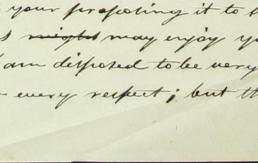 your proposing it to b
s might may enjoy yo
I am disposed to be very
every respect; but th